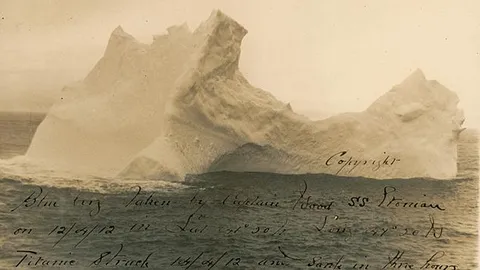 Copyright
Blue berg Taken by Captain Wood SS Etonian
on 12/4/12 in Lat 41° 50 N Long 49° 50 W
Titanic Struck 14/4/12 and Sank in three hours